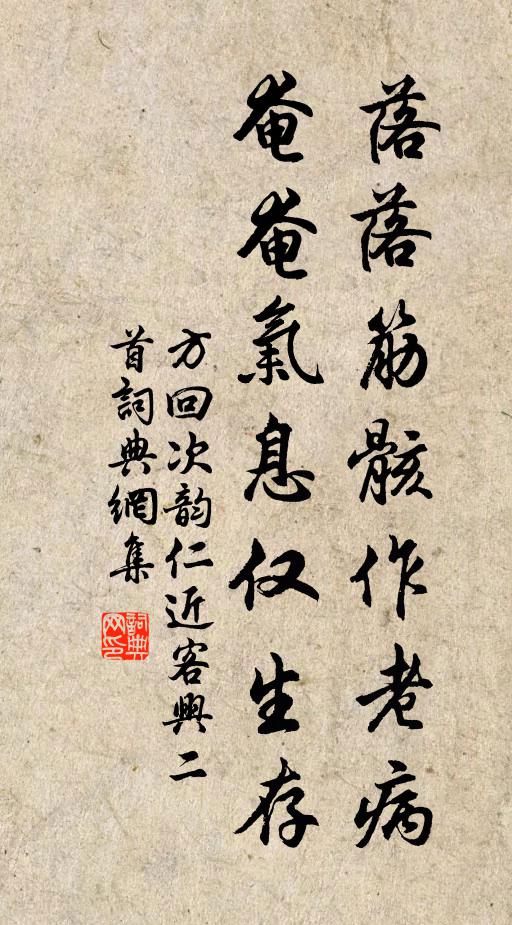 落落筋骸作老病
奄奄氣息仅生存
方回次韵仁近客興二
首詞典網集
詞典
网印